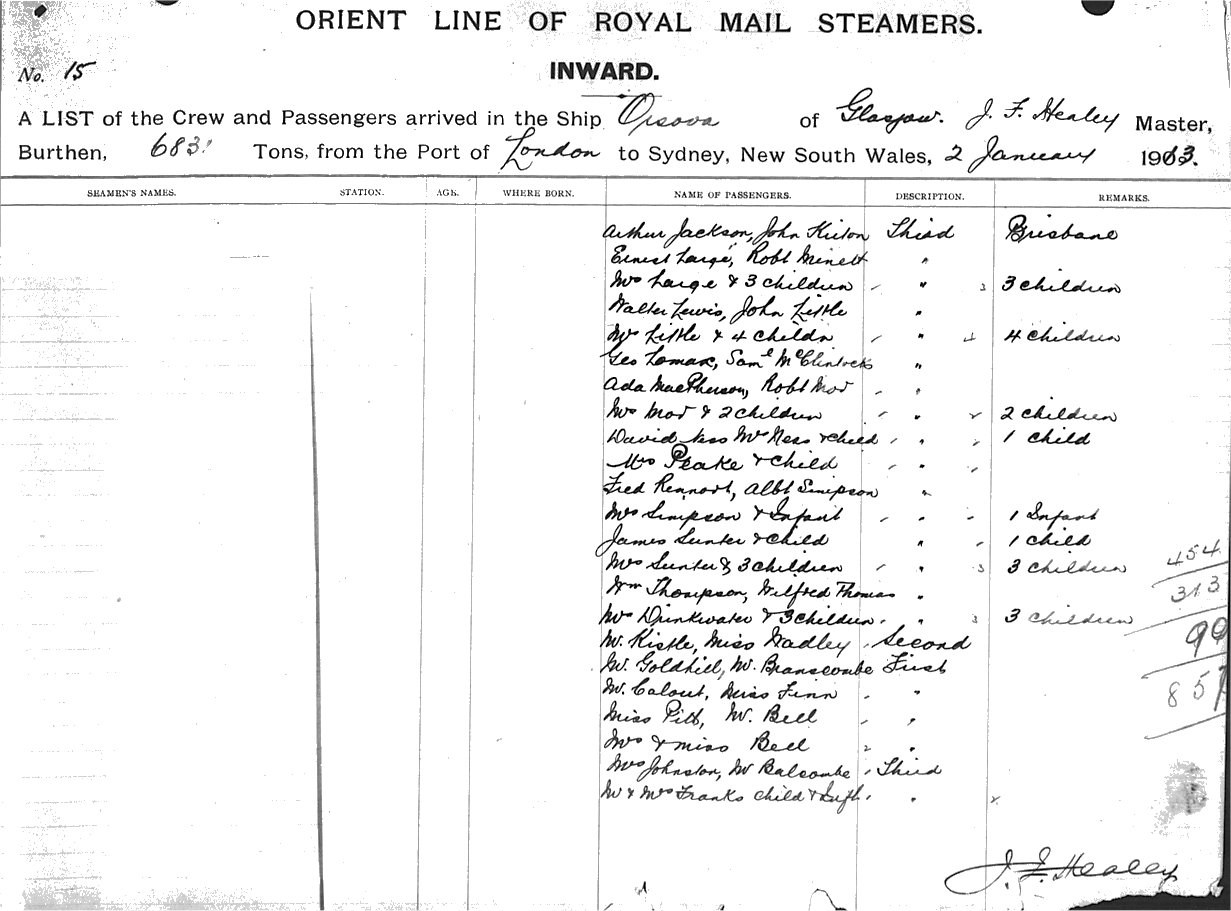 ORIENT LINE OF ROYAL MAIL STEAMERS.
No. 15
INWARD.
A LIST of the Crew and Passengers arrived in the Ship Orsova of Glasgow. J. F. Healey Master,
Burthen, 683 Tons, from the Port of London to Sydney, New South Wales, 2 January 1913.
SEAMEN'S NAMES. STATION. AGE. WHERE BORN. NAME OF PASSENGERS. DESCRIPTION. REMARKS.
Arthur Jackson, John Third Brisbane
Ernest Large, Robt Minett "
Mrs Large & 3 children " 3 3 children
Walter Lewis, John Little "
Mrs Little & 4 Childn " 4 4 children
Geo Lomax, Saml McClintock "
Ada MacPherson, Robt Mor "
Mrs Mor & 2 children " 2 children
David Ness Mrs Ness & child " 1 child
Mrs Peake & child "
Fred Rennart, Albt Simpson "
Mrs Simpson & Infant " 1 Infant
James Sunter & child " 1 child
Mrs Sunter & 3 children " 3 3 children
454
Wm Thompson, Wilfred Thomas "
313
Mrs Drinkwater & 3 children " 3 3 children
90
Mr. Kistle, Miss Wadley Second
Mr. Goldhill, Mr. Branscombe First
Mr. Calout, Miss Finn "
857
Miss Pitt, Mr. Bell "
Mrs & Miss Bell 2 "
Mrs Johnston, Mr Balcombe Third
Mr & Mrs Franks child & "
J. F. Healey